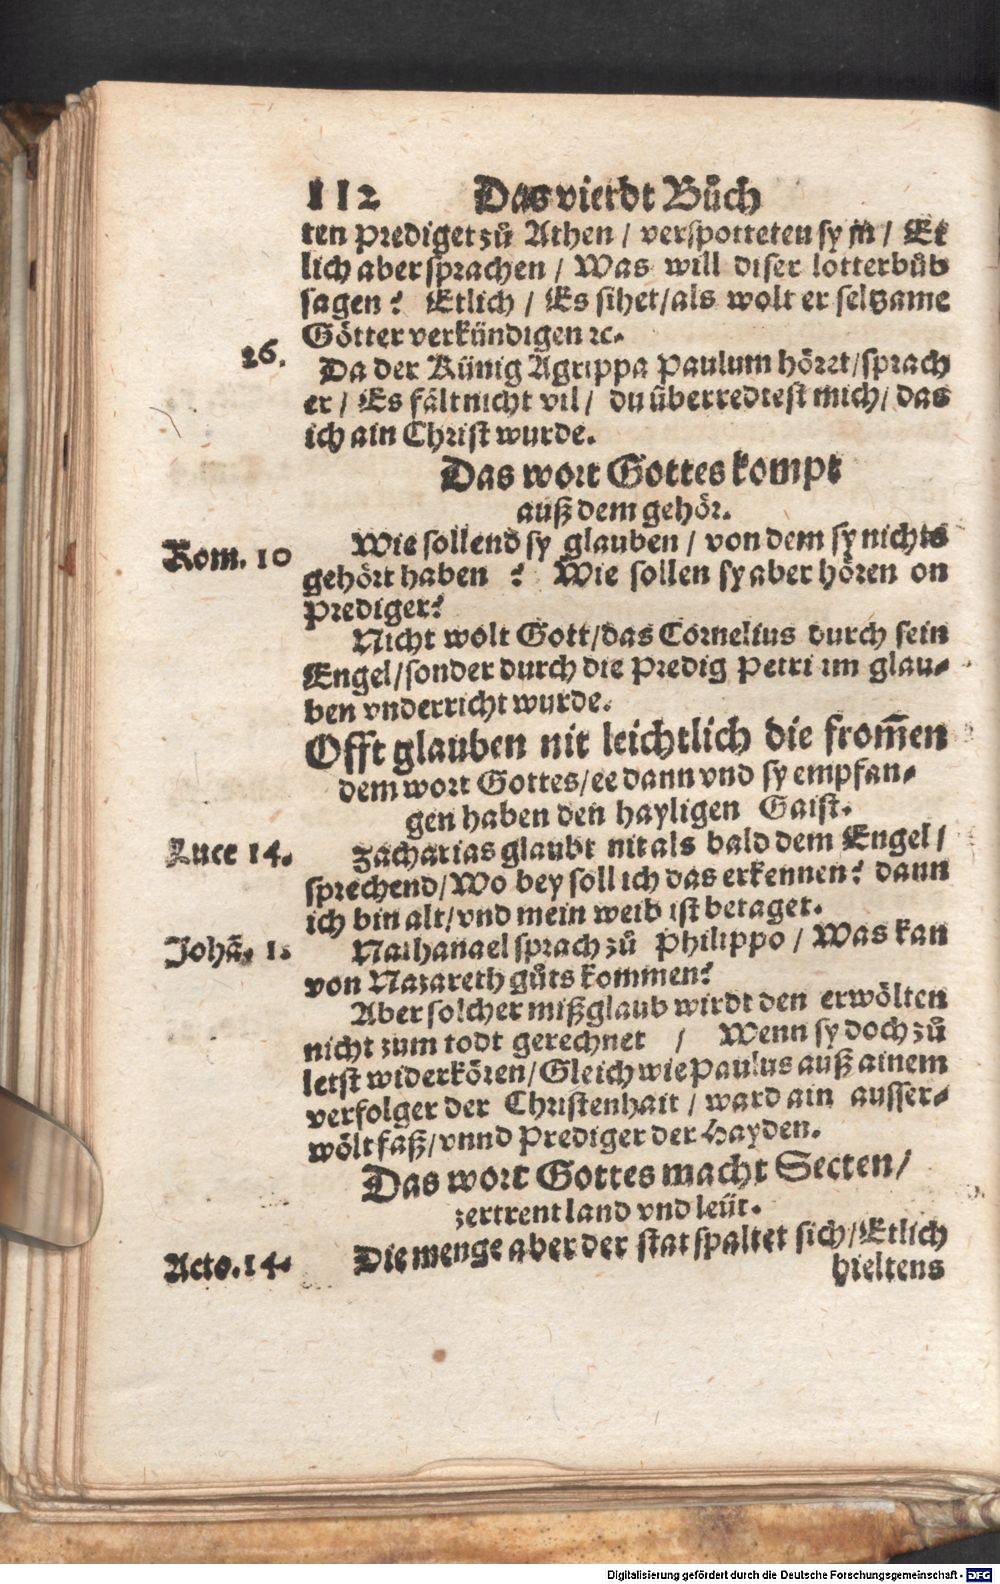 112 Das vierdt Bůch
ten prediget zů Athen / verspotteten sy jn / Et
lich aber sprachen / Was will diser lotterbůb
sagen? Etlich / Es sihet/als wolt er seltzame
Götter verkündigen ꝛc.
26.
Da der Künig Agrippa Paulum höret/sprach
er / Es fält nicht vil / du überredtest mich/ das
ich ain Christ wurde.
Das wort Gottes kompt
auß dem gehör.
Rom. 10
Wie sollend sy glauben / von dem sy nichts
gehört haben ? Wie sollen sy aber hören on
Prediger?
Nicht wolt Gott/das Cornelius durch sein
Engel/sonder durch die Predig Petri im glau-
ben vnderricht wurde.
Offt glauben nit leichtlich die from̃en
dem wort Gottes/ee dann vnd sy empfan-
gen haben den hayligen Gaist.
Luce 14.
Zacharias glaubt nit als bald dem Engel /
sprechend/Wo bey soll ich das erkennen? dann
ich bin alt/vnd mein weib ist betaget.
Johã. 1.
Nathanael sprach zů Philippo / Was kan
von Nazareth gůts kommen?
Aber solcher mißglaub wirdt den erwölten
nicht zum todt gerechnet / Wenn sy doch zů
letst widerkören/Gleich wie Paulus auß ainem
verfolger der Christenhait / ward ain ausser-
wölt faß/vnnd Prediger der Hayden.
Das wort Gottes macht Secten/
zertrent land vnd leüt.
Acto. 14.
Die menge aber der stat spaltet sich/Etlich
hieltens
Digitalisierung gefördert durch die Deutsche Forschungsgemeinschaft - DFG